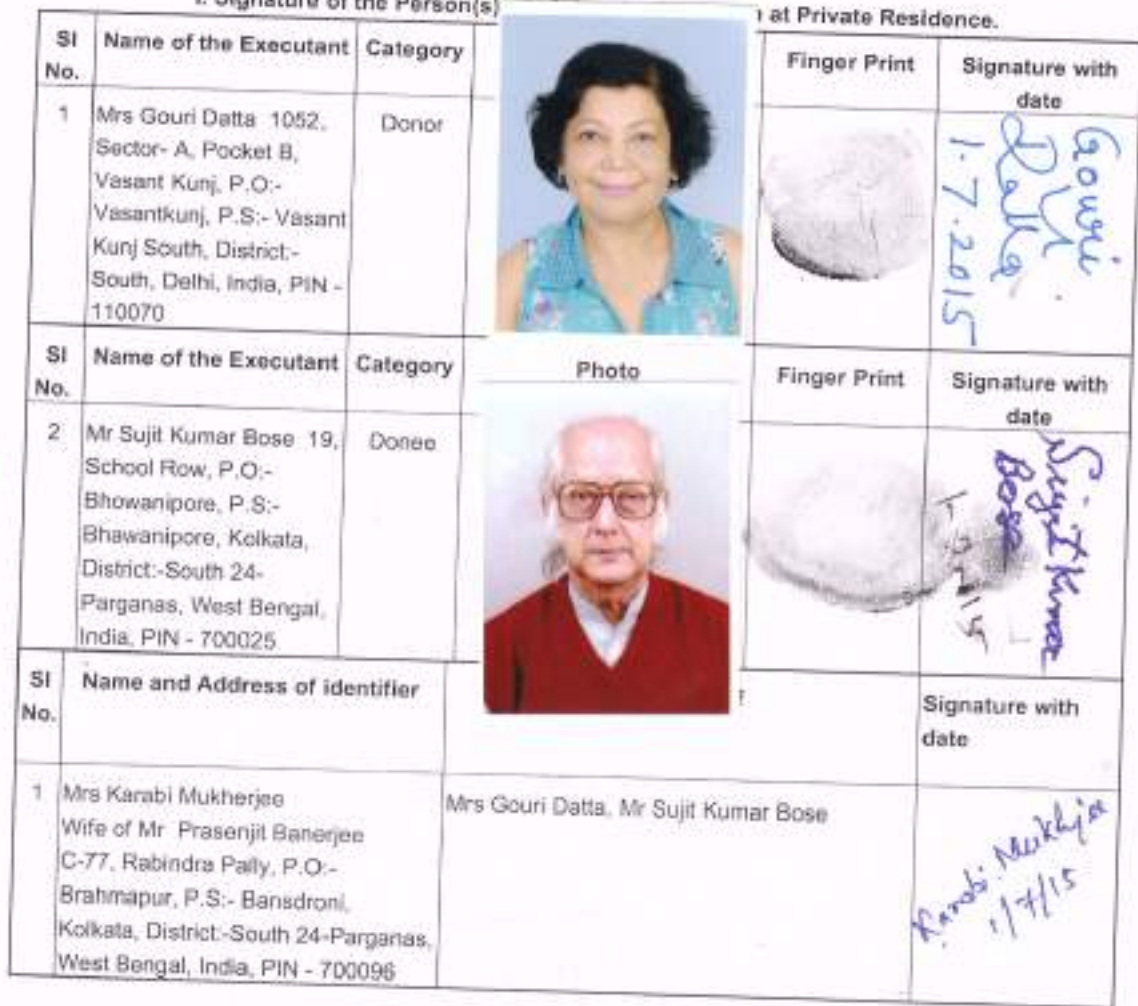 I. Signature of the Person(s)
at Private Residence.
Sl No.
Name of the Executant
Category
Finger Print
Signature with date
1
Mrs Gouri Datta 1052,
Sector- A, Pocket B,
Vasant Kunj, P.O:-
Vasantkunj, P.S:- Vasant
Kunj South, District:-
South, Delhi, India, PIN -
110070
Donor
Gouri
Datta
1.7.2015
Sl No.
Name of the Executant
Category
Photo
Finger Print
Signature with date
2
Mr Sujit Kumar Bose 19,
School Row, P.O:-
Bhowanipore, P.S:-
Bhawanipore, Kolkata,
District:-South 24-
Parganas, West Bengal,
India, PIN - 700025
Donee
Sujit Kumar
Bose
Sl No.
Name and Address of identifier
Signature with date
1
Mrs Karabi Mukherjee
Wife of Mr Prasenjit Banerjee
C-77, Rabindra Pally, P.O:-
Brahmapur, P.S:- Bansdroni,
Kolkata, District:-South 24-Parganas,
West Bengal, India, PIN - 700096
Mrs Gouri Datta, Mr Sujit Kumar Bose
Karabi Mukherjee
1/7/15